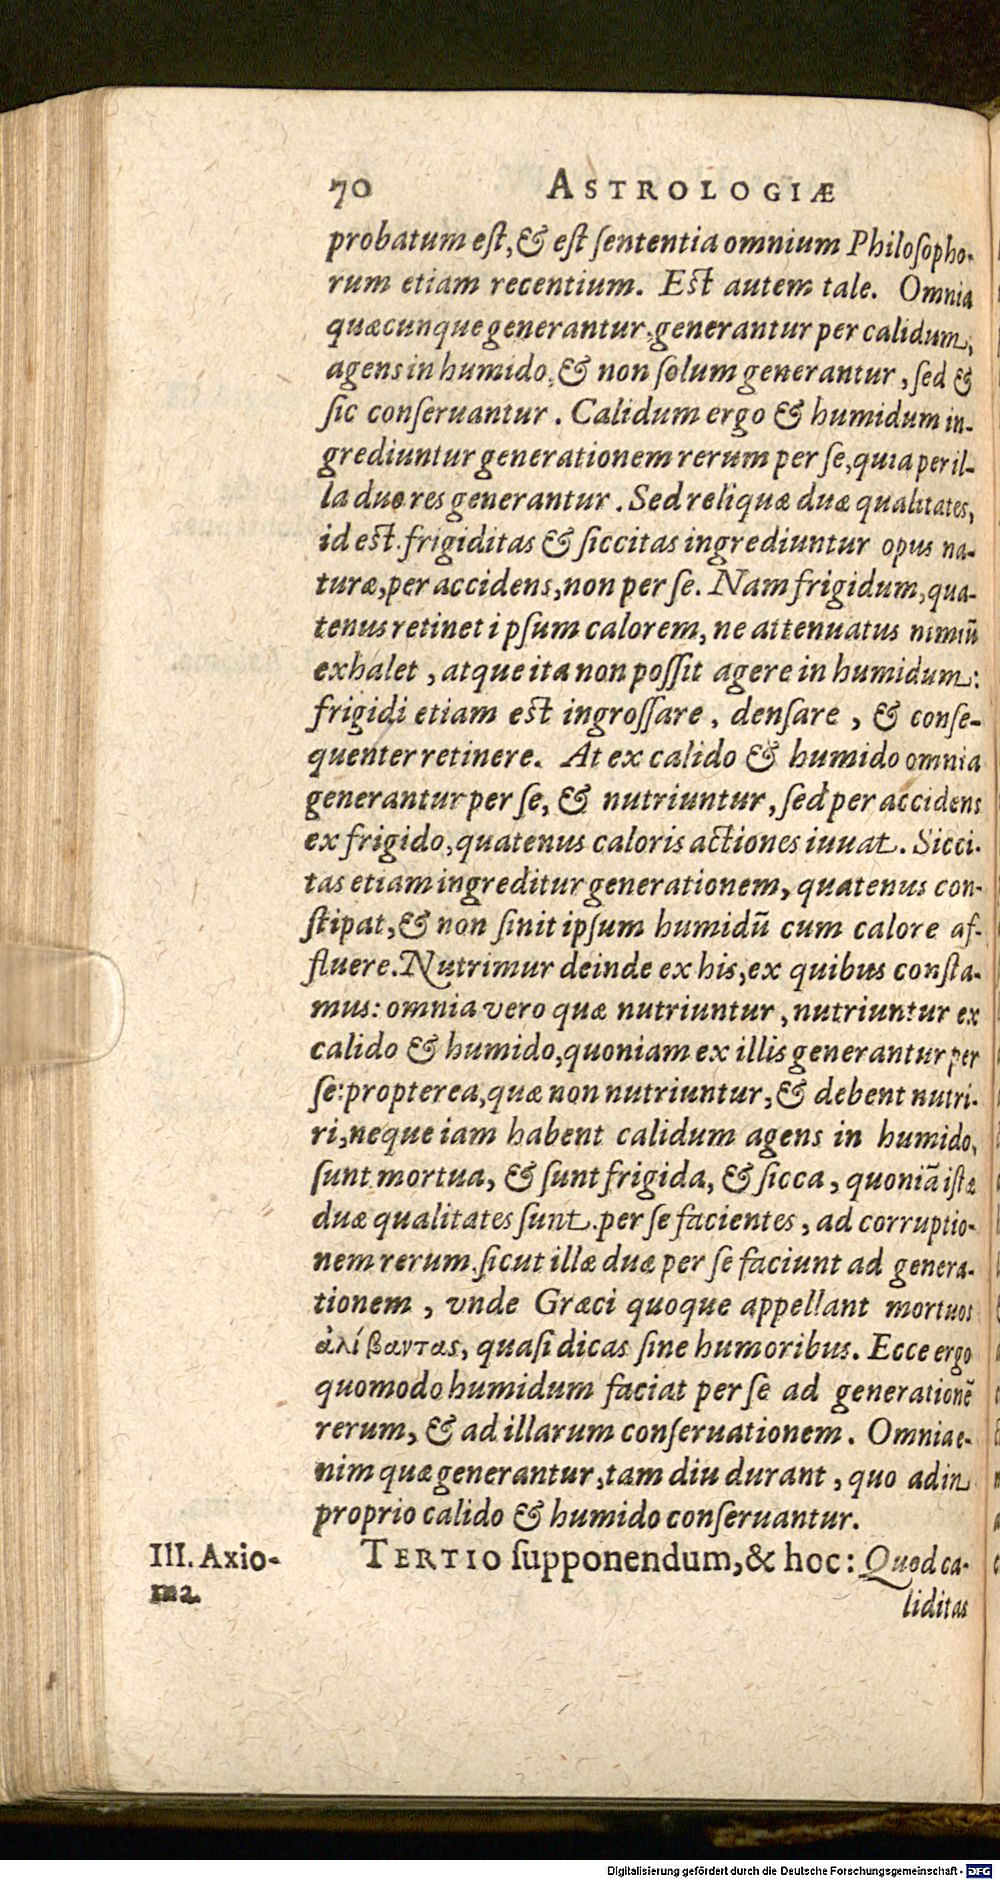 70 ASTROLOGIÆ
probatum eſt, & eſt ſententia omnium Philoſopho-
rum etiam recentium. Eſt autem tale. Omnia
quæcunque generantur, generantur per calidum,
agens in humido, & non ſolum generantur, ſed &
ſic conſeruantur. Calidum ergo & humidum in-
grediuntur generationem rerum per ſe, quia per il-
la duo res generantur. Sed reliquæ duæ qualitates,
id eſt frigiditas & ſiccitas ingrediuntur opus na-
turæ, per accidens, non per ſe. Nam frigidum, qua-
tenus retinet ipſum calorem, ne attenuatus nimiũ
exhalet, atque ita non poſſit agere in humidum:
frigidi etiam eſt ingroſſare, denſare, & conſe-
quenter retinere. At ex calido & humido omnia
generantur per ſe, & nutriuntur, ſed per accidens
ex frigido, quatenus caloris actiones iuuat. Sicci-
tas etiam ingreditur generationem, quatenus con-
ſtipat, & non ſinit ipſum humidũ cum calore af-
fluere. Nutrimur deinde ex his, ex quibus conſta-
mus: omnia vero quæ nutriuntur, nutriuntur ex
calido & humido, quoniam ex illis generantur per
ſe: propterea, quæ non nutriuntur, & debent nutri-
ri, neque iam habent calidum agens in humido,
ſunt mortua, & ſunt frigida, & ſicca, quoniã iſtæ
duæ qualitates ſunt per ſe facientes, ad corruptio-
nem rerum, ſicut illæ duæ per ſe faciunt ad genera-
tionem, vnde Græci quoque appellant mortuos
ἀλίβαντας, quaſi dicas ſine humoribus. Ecce ergo
quomodo humidum faciat per ſe ad generationẽ
rerum, & ad illarum conſeruationem. Omnia e-
nim quæ generantur, tam diu durant, quo ad in
proprio calido & humido conſeruantur.
III. Axio- TERTIO ſupponendum, & hoc: Quod ca-
ma. liditas
Digitalisierung gefördert durch die Deutsche Forschungsgemeinschaft - DFG